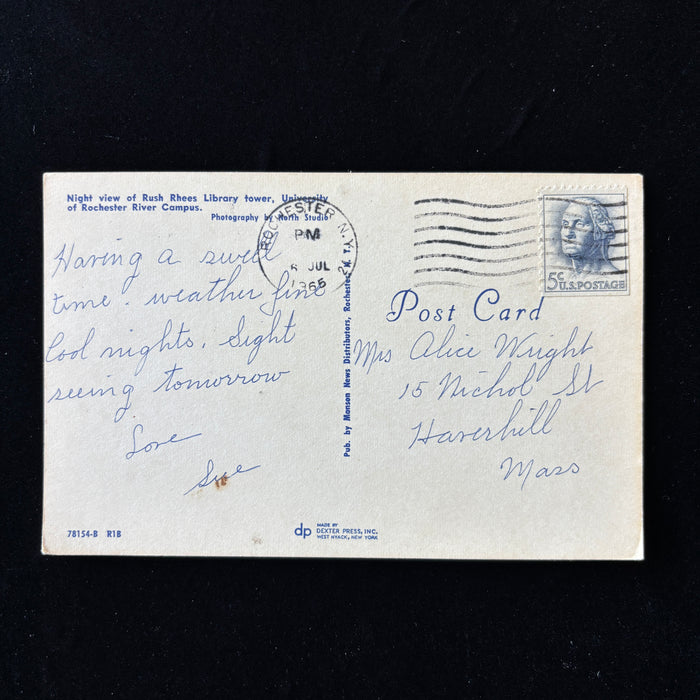 Night view of Rush Rhees Library tower, University
of Rochester River Campus.
Photography by North Studio
ROCHESTER, N.Y.
PM
JUL
5¢ U.S. POSTAGE
Having a swell
time. weather fine
Cool nights. Sight
seeing tomorrow
Love
Sue
Pub. by Manson News Distributors, Rochester, N.Y.
Post Card
Mrs Alice Wright
15 Nichol St
Haverhill
Mass
78154-B R1B
dp
MADE BY
DEXTER PRESS, INC.
WEST NYACK, NEW YORK